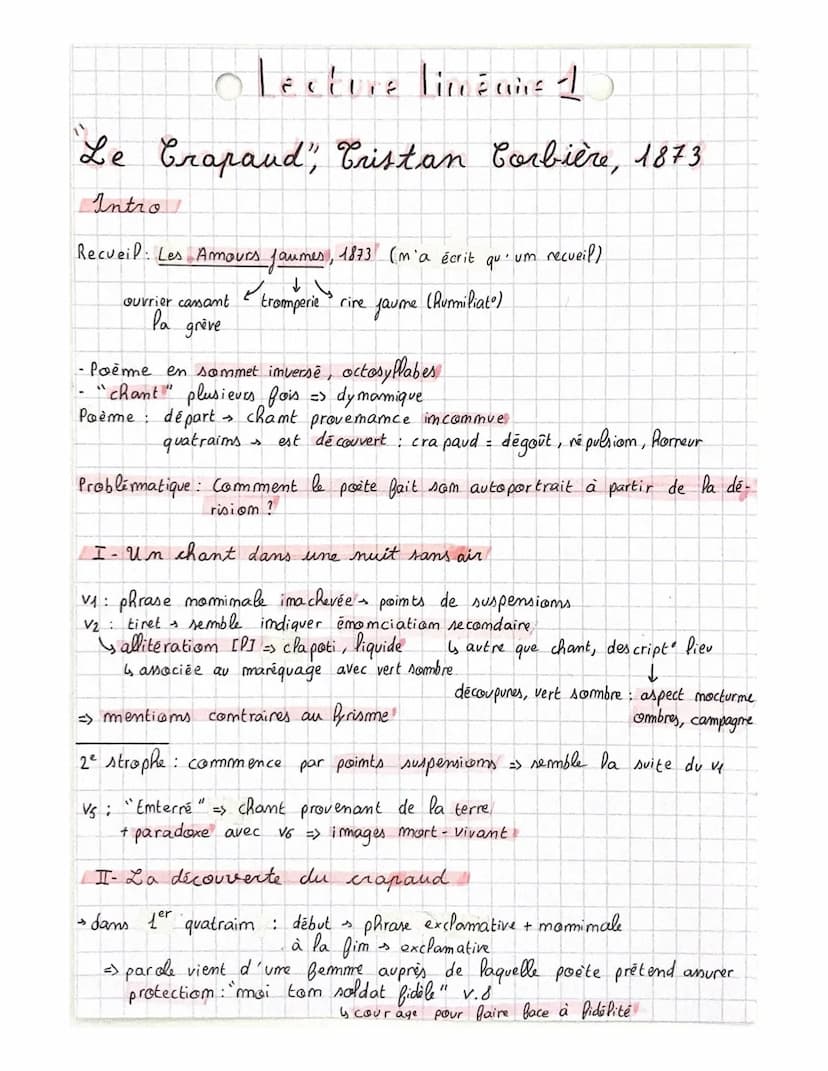 Lecture linéaire 1
"Le Crapaud", Tristan Corbière, 1873
Intro
Recueil : Les Amours jaunes, 1873 (n'a écrit qu'un recueil)
ouvrier cassant tromperie rire jaune (humiliat°)
la grève
- Poème en sonnet inversé, octosyllabes
- "chant" plusieurs fois => dynamique
Poème : départ → chant provenance inconnue
quatrains → est découvert : crapaud = dégoût, répulsion, horreur
Problématique : Comment le poète fait son autoportrait à partir de la dé-
rision ?
I - Un chant dans une nuit sans air
v1 : phrase nominale inachevée → points de suspensions
v2 : tiret → semble indiquer énonciation secondaire
↳ allitération [l] => clapoti, liquide ↳ autre que chant, descript° lieu
↳ associée au maréquage avec vert sombre ↓
découpures, vert sombre : aspect nocturne
=> mentions contraires au lyrisme ombres, campagne
2e strophe : commence par points suspensions => semble la suite du v4
v5 : "Enterré" => chant provenant de la terre
+ paradoxe avec v6 => images mort-vivant
II - La découverte du crapaud
→ dans 1er quatrain : début → phrase exclamative + nominale
à la fin → exclamative
=> parole vient d'une femme auprès de laquelle poète prétend assurer
protection : "moi ton soldat fidèle" v.8
↳ courage pour faire face à fidélité